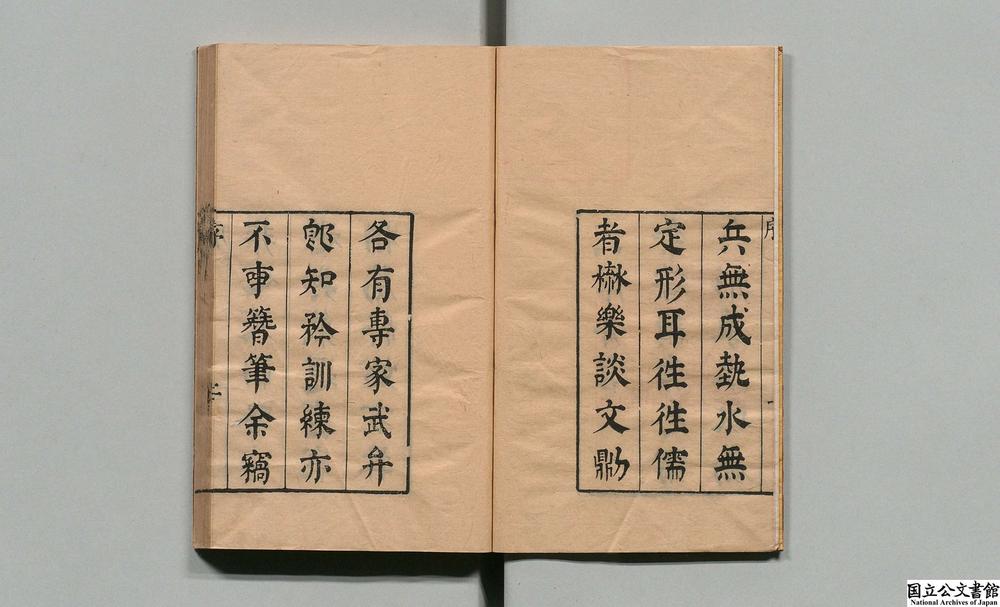 兵無成埶水無
定形耳徃徃儒
者楙樂談文鼎
各有專家武弁
郎知矜訓練亦
不事簪筆余竊
序
国立公文書館
National Archives of Japan